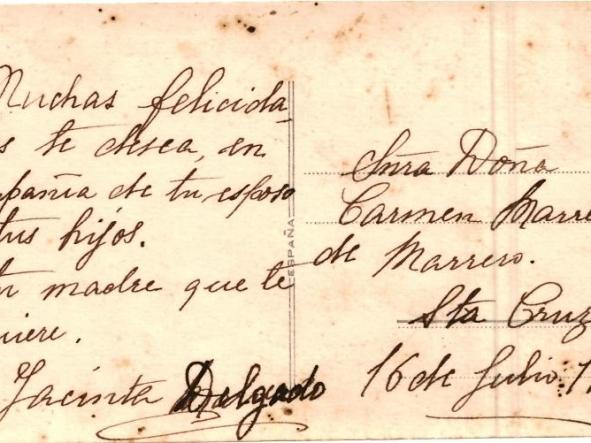 Muchas felicida
s te desea, en
pañia de tu esposo
tus hijos.
tu madre que te
uiere.
Jacinta Delgado
ESPAÑA
Snra Doña
Carmen Marre
de Marrero.
Sta Cruz
16 de Julio. 1